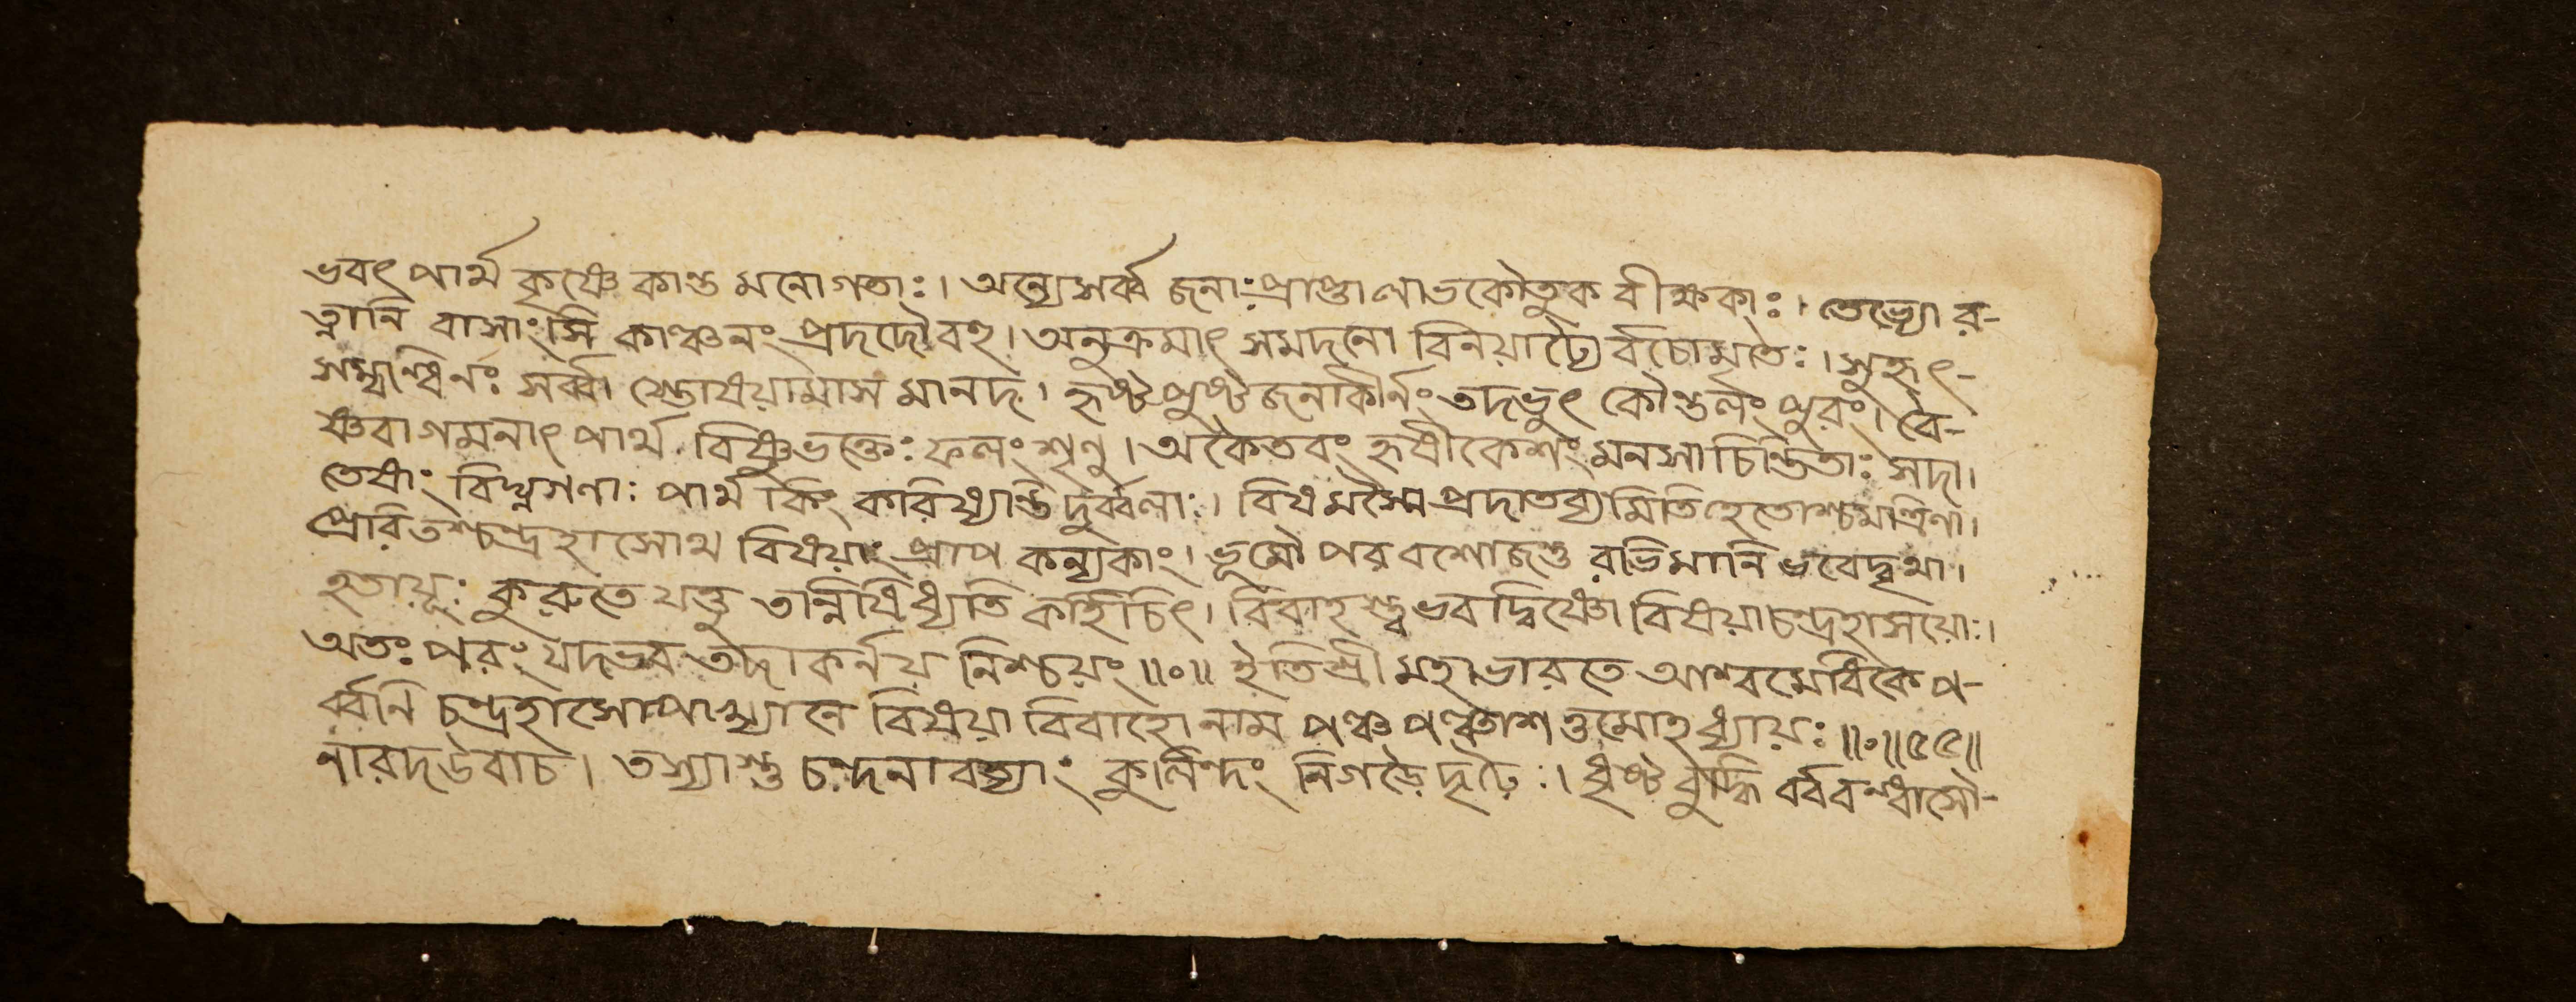 ভবৎ পার্থ কৃষ্ণে কান্ত মনোগতাঃ। অন্যেসর্ব্ব জনাঃপ্রাপ্তালাভকৌতুক বীক্ষকাঃ। তেভ্যো র-
ত্নানি বাসাংসি কাঞ্চনং প্রদদৌবহু। অনুক্রমাৎ সমদনো বিনয়াঢ্যৈ র্বচোমৃতৈঃ। সুহৃৎ-
সম্বন্ধিনঃ সর্ব্বা স্তোষয়ামাস মানদ। হৃষ্টপুষ্টজনাকীর্নং তদভুৎ কৌন্তলং পুরং। বৈ-
ষ্ণবাগমনাৎ পার্থ বিষ্ণুভক্তেঃ ফলং শৃণু। অকৈতবং হৃষীকেশং মনসাচিন্তিতাঃ সদা।
তেষাং বিঘ্নগণাঃ পার্থ কিং করিষ্যন্তি দুর্ব্বলাঃ। বিষমস্মৈ প্রদাতব্যমিতিহেতোশ্চমন্ত্রিণা।
প্রেরিতশ্চন্দ্রহাসোথ বিষয়াং প্রাপ কন্যকাং। ভূমৌ পরবশোজন্তু রভিমানি ভবেদ্বৃথা।
হতায়ূঃ কুরুতে যত্তু তান্নষিধ্যতি কর্হিচিৎ। বিবাহস্ত্বভবদ্বিষ্ণো বিষয়াচন্দ্রহাসয়োঃ।
অতঃপরং যদভব তদাকর্নয় নিশ্চয়ং॥०॥ ইতিশ্রীমহাভারতে আশ্বমেধিকেপ-
র্ব্বনি চন্দ্রহাসোপাখ্যানে বিষয়া বিবাহোনাম পঞ্চপঞ্চাশত্তমোহধ্যায়ঃ॥०॥৫৫॥
নারদউবাচ। তস্যাস্তু চন্দনাবত্যাং কুলিন্দং নিগড়ৈদৃঢ়ৈঃ। ধৃষ্টবুদ্ধি র্ববন্ধাসৌ-